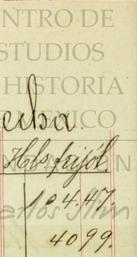 NTRO DE
STUDIOS
HISTORIA
MÉXICO
echa.
Hls frijol.
104.47.
4099.